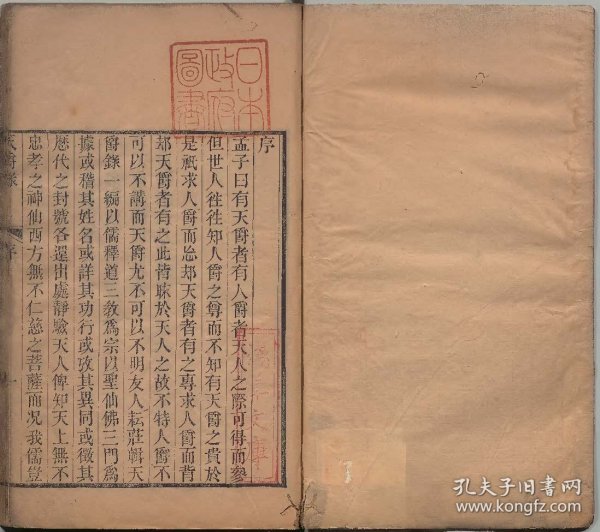 序
孟子曰有天爵者有人爵者天人之際可得而參
但世人徃徃知人爵之尊而不知有天爵之貴於
是祇求人爵而忘却天爵者有之專求人爵而背
却天爵者有之此皆昧於天人之故不特人爵不
可以不講而天爵尤不可以不明友人耘莊輯天
爵錄一編以儒釋道三敎爲宗以聖仙佛三門爲
據或稽其姓名或詳其功行或攷其異同或徵其
歷代之封號各還出處靜驗天人俾知天上無不
忠孝之神仙西方無不仁慈之菩薩而况我儒豈
天爵錄
序
一
日本
政府
圖書
孔夫子旧书网